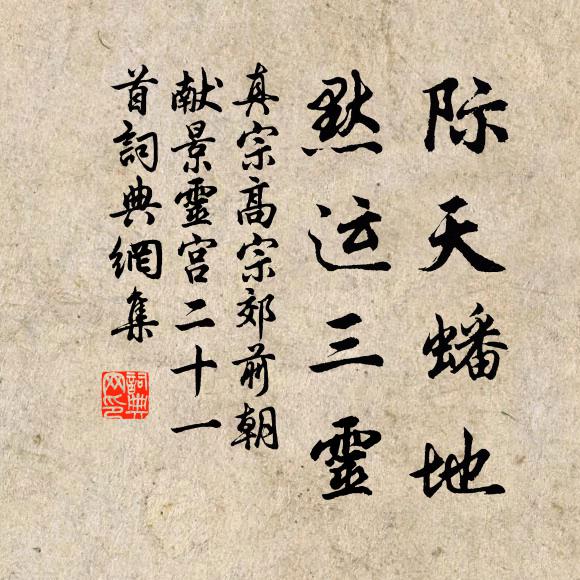 际天蟠地
默运三靈
真宗高宗郊前朝
献景靈宫二十一
首詞典網集
詞典网印